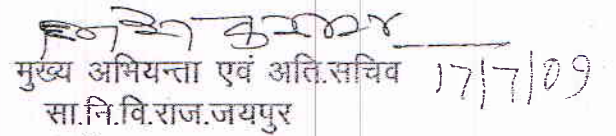 मुख्य अभियन्ता एवं अति.सचिव 17/7/09
सा.नि.वि.राज.जयपुर